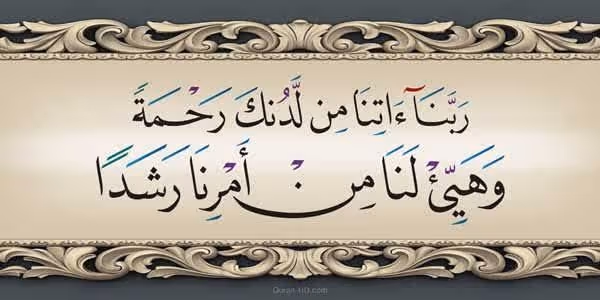 رَبَّنَآ ءَاتِنَا مِن لَّدُنكَ رَحْمَةً
وَهَيِّئْ لَنَا مِنْ أَمْرِنَا رَشَدًا
Quran-HD.com